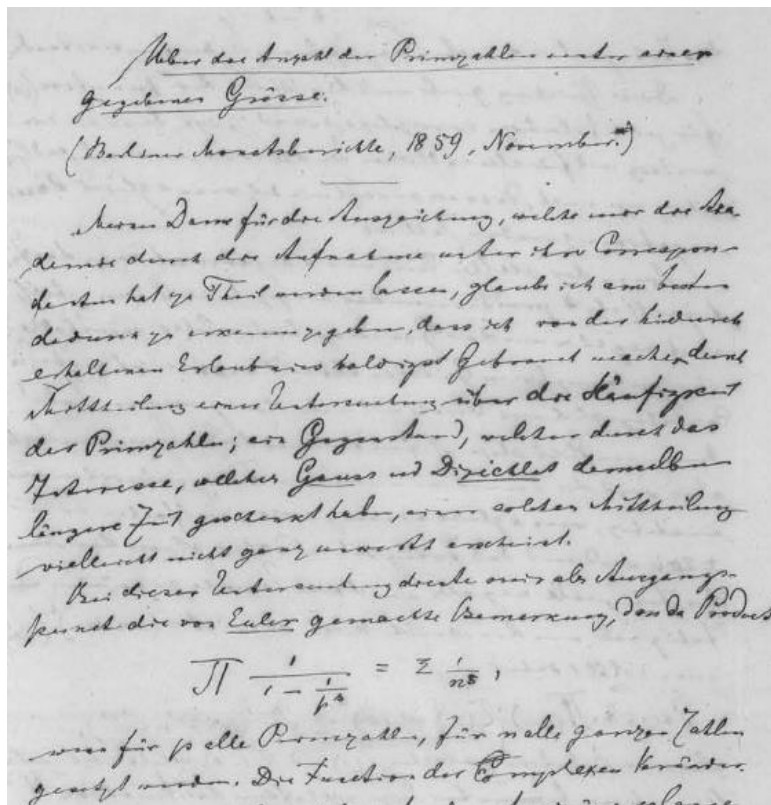 Ueber die Anzahl der Primzahlen unter einer
gegebenen Grösse.
(Berliner Monatsberichte, 1859, November.*)
Meinen Dank für die Auszeichnung, welche mir die Aka-
demie durch die Aufnahme unter ihre Correspon-
denten hat zu Theil werden lassen, glaube ich am besten
dadurch zu erkennen zu geben, dass ich von der hierdurch
erhaltenen Erlaubniss baldigst Gebrauch mache durch
Mittheilung einer Untersuchung über die Häufigkeit
der Primzahlen; ein Gegenstand, welcher durch das
Interesse, welches Gauss und Dirichlet demselben
längere Zeit geschenkt haben, einer solchen Mittheilung
vielleicht nicht ganz unwerth erscheint.
Bei dieser Untersuchung diente mir als Ausgangs-
punct die von Euler gemachte Bemerkung, dass das Product
∏ 1/(1 − 1/p^s) = Σ 1/n^s,
wenn für p alle Primzahlen, für n alle ganzen Zahlen
gesetzt werden. Die Function der complexen Veränder-